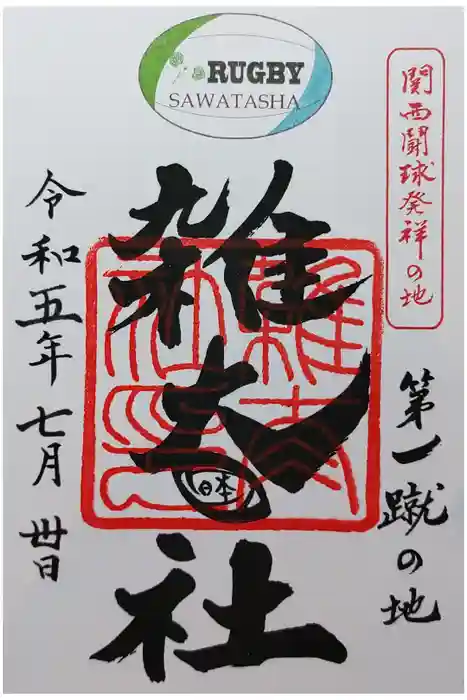 RUGBY
SAWATASHA
関西闘球発祥の地
第一蹴の地
雑太社
日本
令和五年七月卅日
雑太社之印